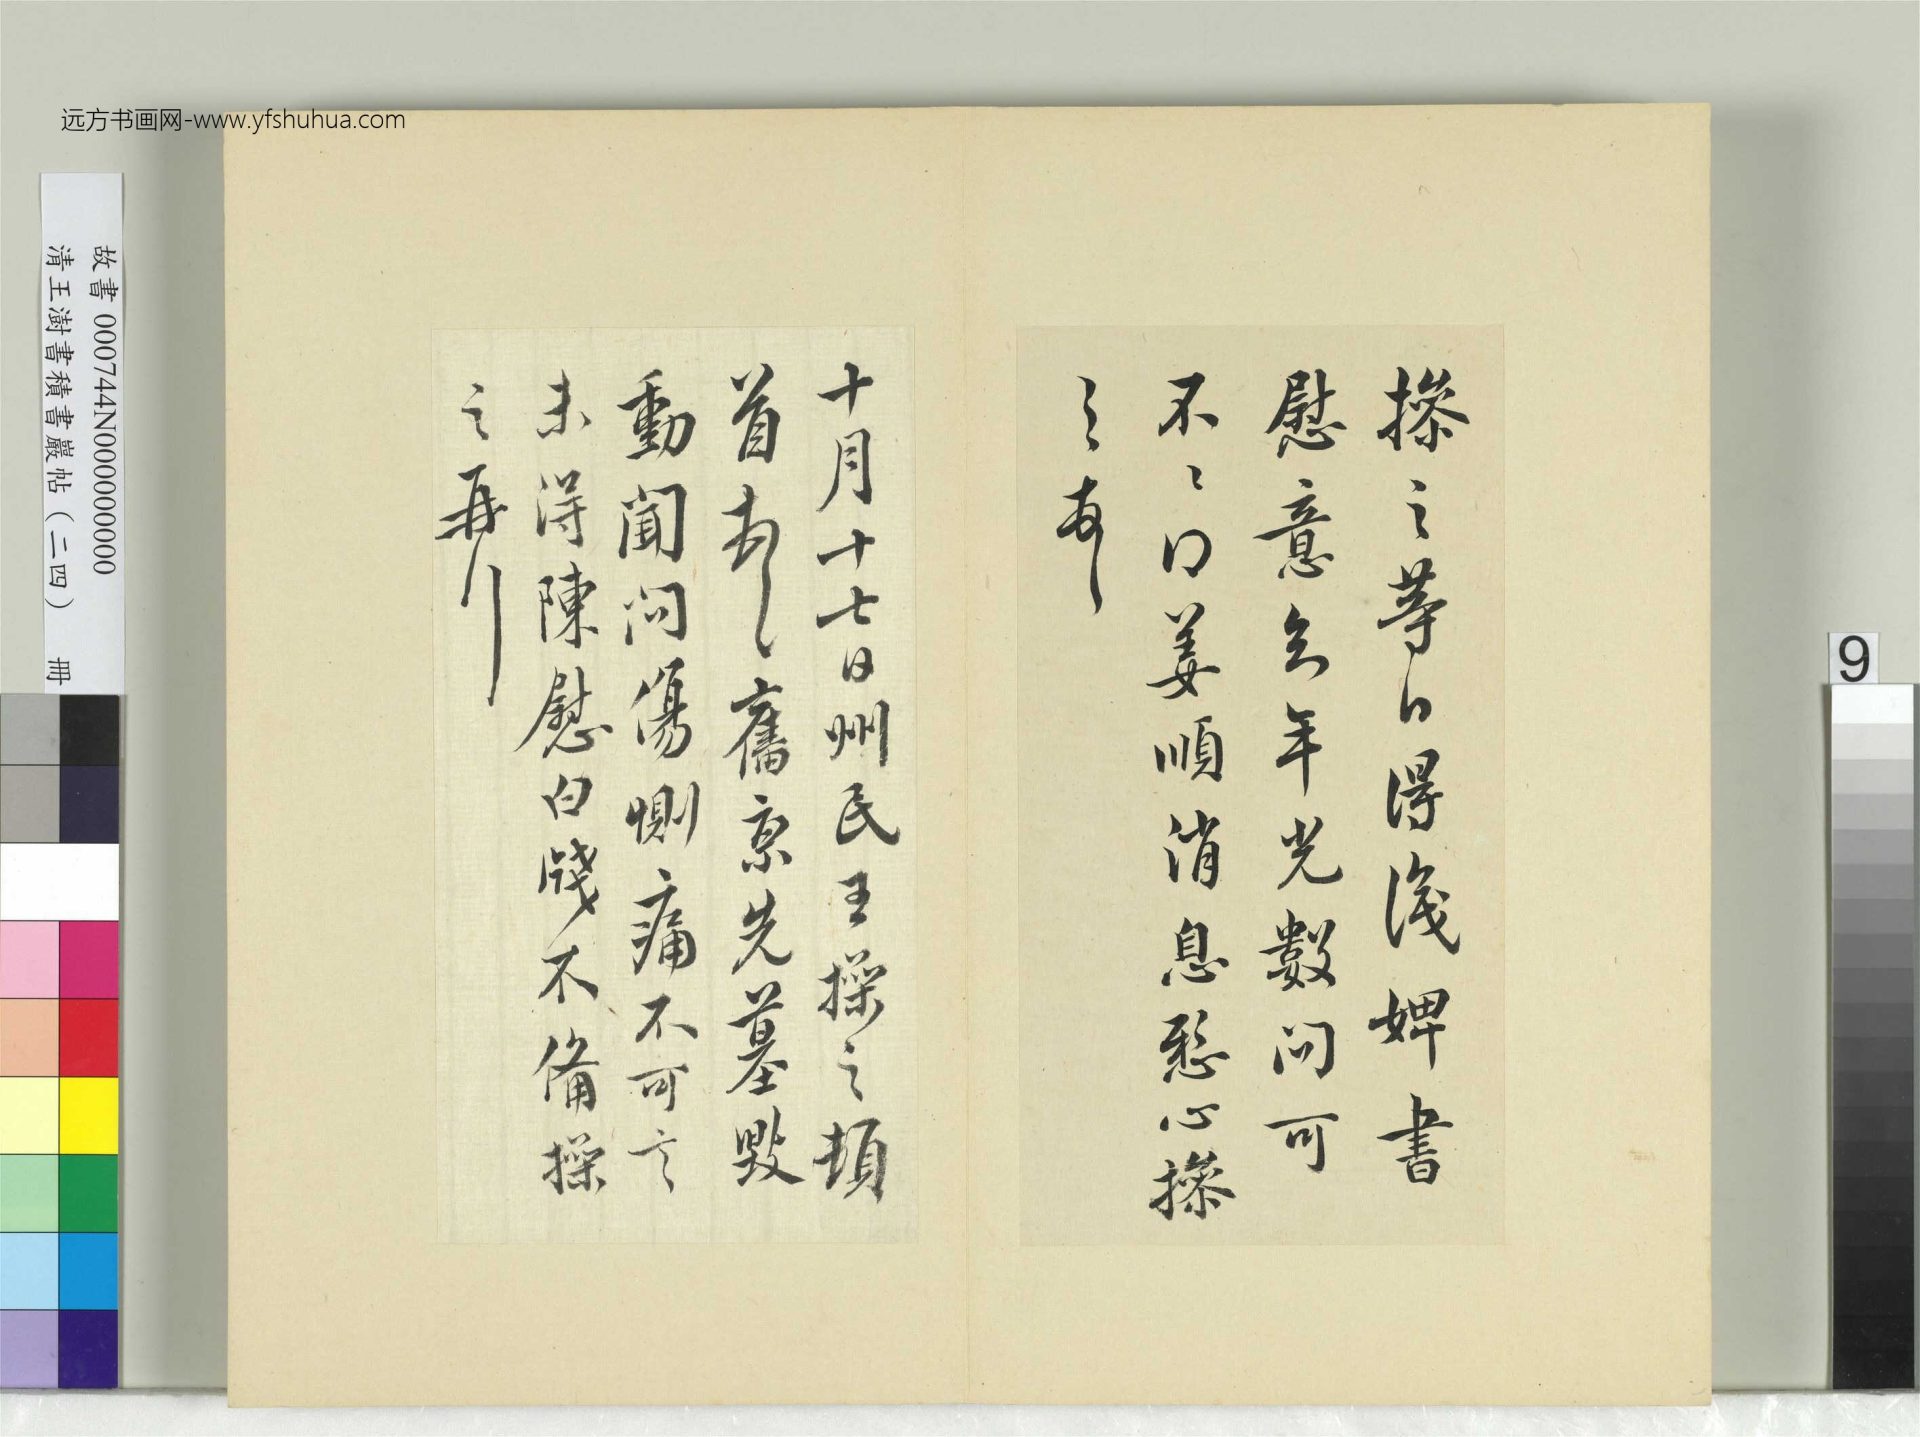 远方书画网-www.yfshuhua.com
故書 000744N000000000
清王澍書積書巖帖（二四） 冊
9
操之等日得識婢書
慰意年光數問可
不〻姜順消息懸心操
之
十月十七日州民王操之頓
首舊京先墓毀
動聞問傷惻痛不可言
未得陳慰白牋不備操
之再